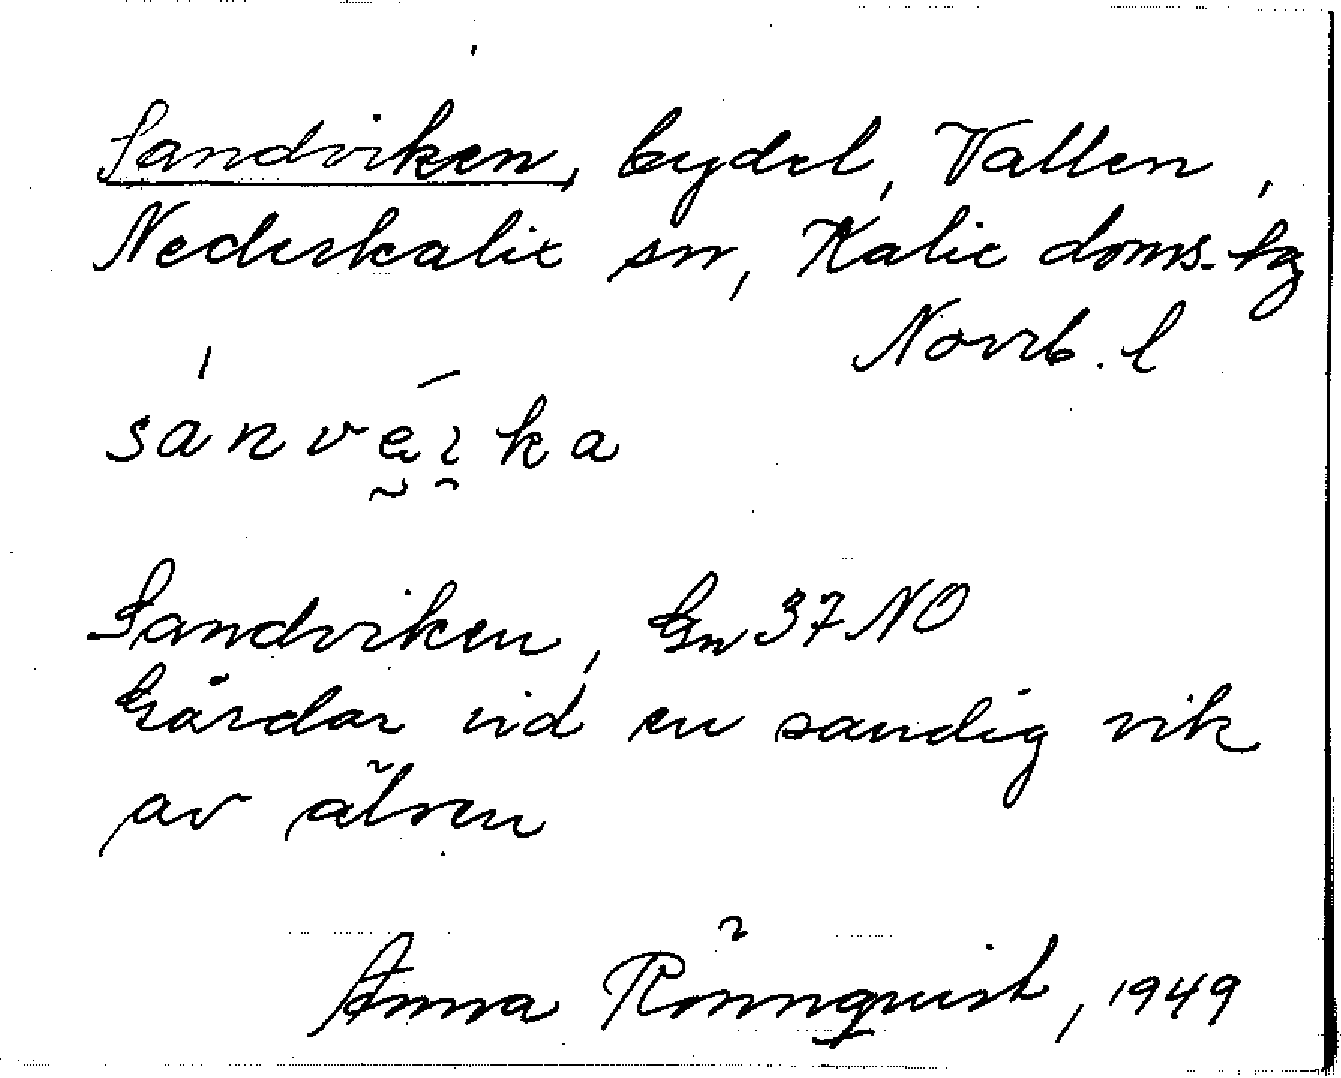 Sandviken, bydel, Vallen,
Nederkalix sn, Kalix doms. tg
Norrb. l
sánvéi̯ka
Sandviken, Gn 37 NO
Gårdar vid en sandig vik
av älven
Anna Rönnqvist, 1949